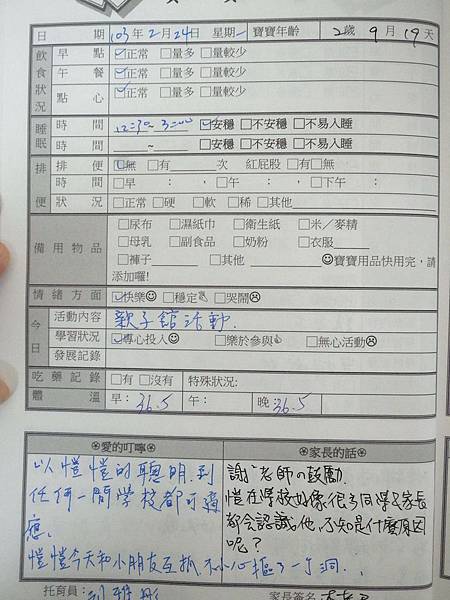 日 期 103年2月24日 星期一 寶寶年齡 2歲9月19天
飲食狀況 早點 ☑正常 □量多 □量較少
午餐 ☑正常 □量多 □量較少
點心 ☑正常 □量多 □量較少
睡眠 時間 12:30~3:00 ☑安穩 □不安穩 □不易入睡
時間 ~ □安穩 □不安穩 □不易入睡
排便 排便 ☑無 □有 次 紅屁股 □有□無
時間 □早 : ,□午 : ,□下午 :
狀況 □正常 □硬 □軟 □稀 □其他
備用物品 □尿布 □濕紙巾 □衛生紙 □米/麥精
□母乳 □副食品 □奶粉 □衣服
□褲子 □其他 ☺寶寶用品快用完,請
添加囉!
情緒方面 ☑快樂☺ □穩定 □哭鬧☹
今日 活動內容 親子館活動.
學習狀況 ☑專心投入☺ □樂於參與 □無心活動☹
發展記錄
吃藥記錄 □有 □沒有 特殊狀況:
體溫 早:36.5 午: 晚:36.5
愛的叮嚀
以愷愷的聰明.到
任何一間學校都可適
應.
愷愷今天和小朋友互抓.不小心摳了一個洞...
家長的話
謝謝老師的鼓勵.
愷在學校好像很多同學及家長
都会認識他,不知是什麼原因
呢?
托育員:
家長簽名: